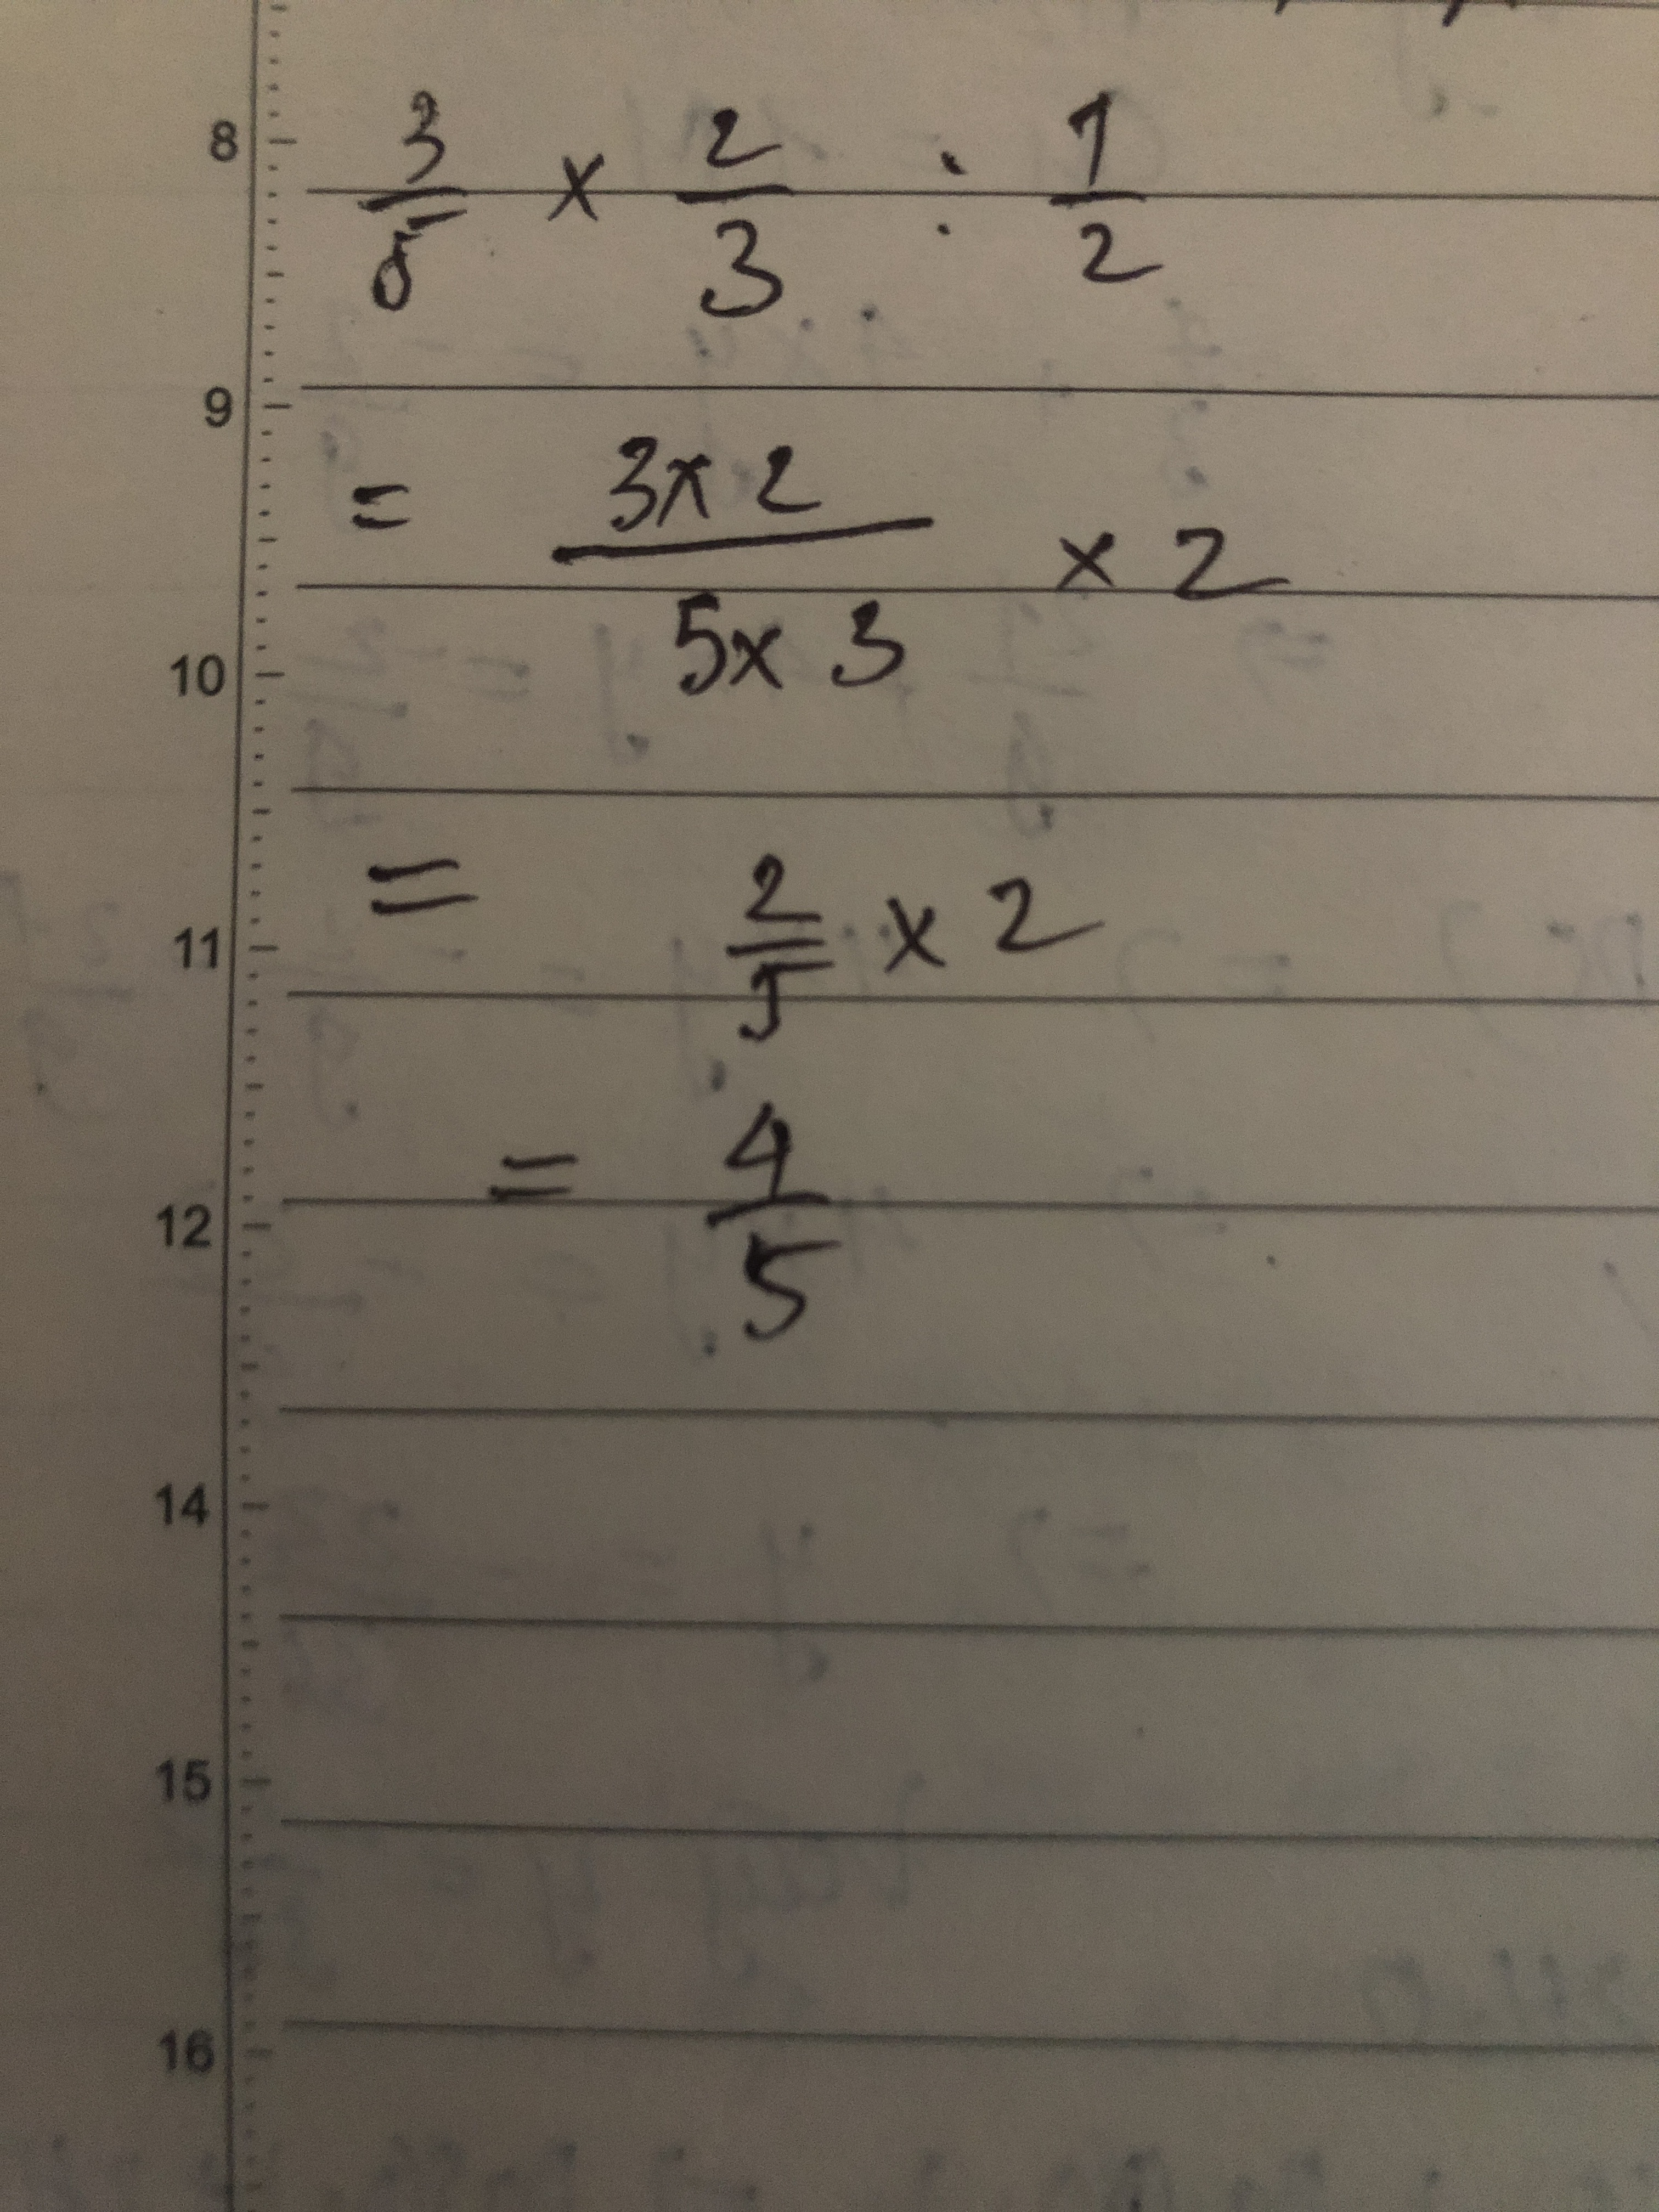 8
3/5 × 2/3 : 1/2
9
= (3×2)/(5×3) × 2
10
= 2/5 × 2
11
= 4/5
12
14
15
16